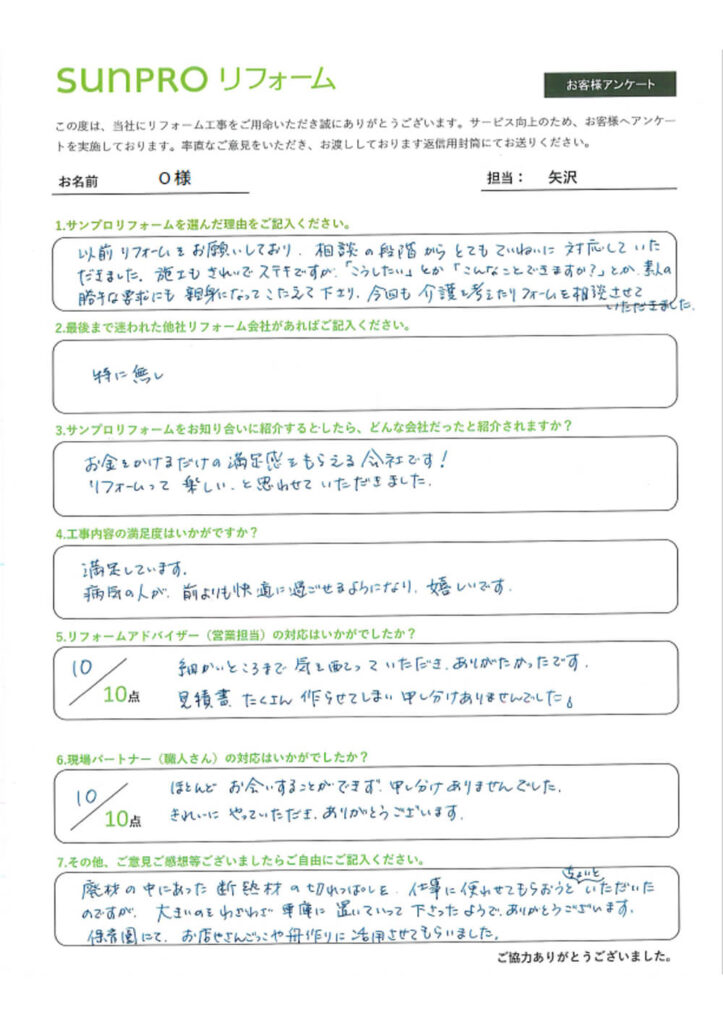 sunPRO リフォーム
お客様アンケート
この度は、当社にリフォーム工事をご用命いただき誠にありがとうございます。サービス向上のため、お客様へアンケー
トを実施しております。率直なご意見をいただき、お渡ししております返信用封筒にてお送りください。
お名前 O様 担当： 矢沢
1.サンプロリフォームを選んだ理由をご記入ください。
以前リフォームをお願いしており、相談の段階からとてもていねいに対応していた
だきました。施工もきれいでステキですが、「こうしたい」とか「こんなことできますか?」とか、素人の
勝手な要求にも親身になってこたえて下さり、今回も介護を考えたリフォームを相談させて
いただきました。
2.最後まで迷われた他社リフォーム会社があればご記入ください。
特に無し
3.サンプロリフォームをお知り合いに紹介するとしたら、どんな会社だったと紹介されますか？
お金をかけるだけの満足感をもらえる会社です!
リフォームって楽しい、と思わせていただきました。
4.工事内容の満足度はいかがですか？
満足しています。
病気の人が、前よりも快適に過ごせるようになり、嬉しいです。
5.リフォームアドバイザー（営業担当）の対応はいかがでしたか？
10/10点
細かいところまで気を配っていただき、ありがたかったです。
見積書、たくさん作らせてしまい申し分けありませんでした。
6.現場パートナー（職人さん）の対応はいかがでしたか？
10/10点
ほとんどお会いすることができず、申し分けありませんでした。
きれいにやっていただき、ありがとうございます。
7.その他、ご意見ご感想等ございましたらご自由にご記入ください。
廃材の中にあった断熱材の切れっぱしを、仕事に使わせてもらおうとちょいといただいた
のですが、大きいのをわざわざ車庫に置いていって下さったようで、ありがとうございます。
保育園にて、お店やさんごっこや舟作りに活用させてもらいました。
ご協力ありがとうございました。